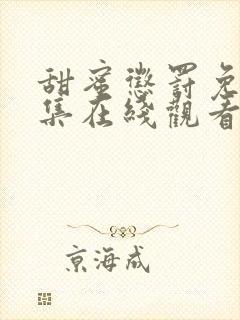 甜蜜懲罰免
集在綫觀看
京海成